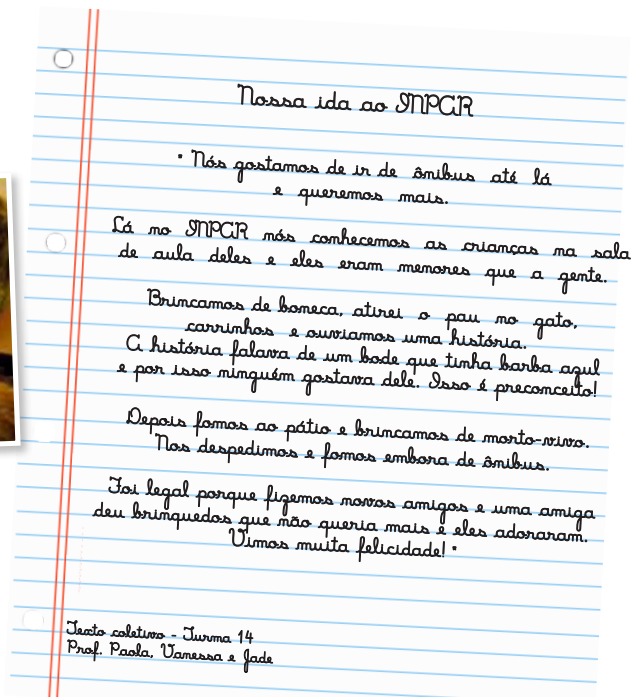 Nossa ida ao INPCR
" Nós gostamos de ir de ônibus até lá
e queremos mais.
Lá no INPCR nós conhecemos as crianças na sala
de aula deles e eles eram menores que a gente.
Brincamos de boneca, atirei o pau no gato,
carrinhos e ouviamos uma história.
A história falava de um bode que tinha barba azul
e por isso ninguém gostava dele. Isso é preconceito!
Depois fomos ao pátio e brincamos de morto-vivo.
Nos despedimos e fomos embora de ônibus.
Foi legal porque fizemos novos amigos e uma amiga
deu brinquedos que não queria mais e eles adoraram.
Vimos muita felicidade! "
Texto coletivo - Turma 14
Prof. Paola, Vanessa e Jade